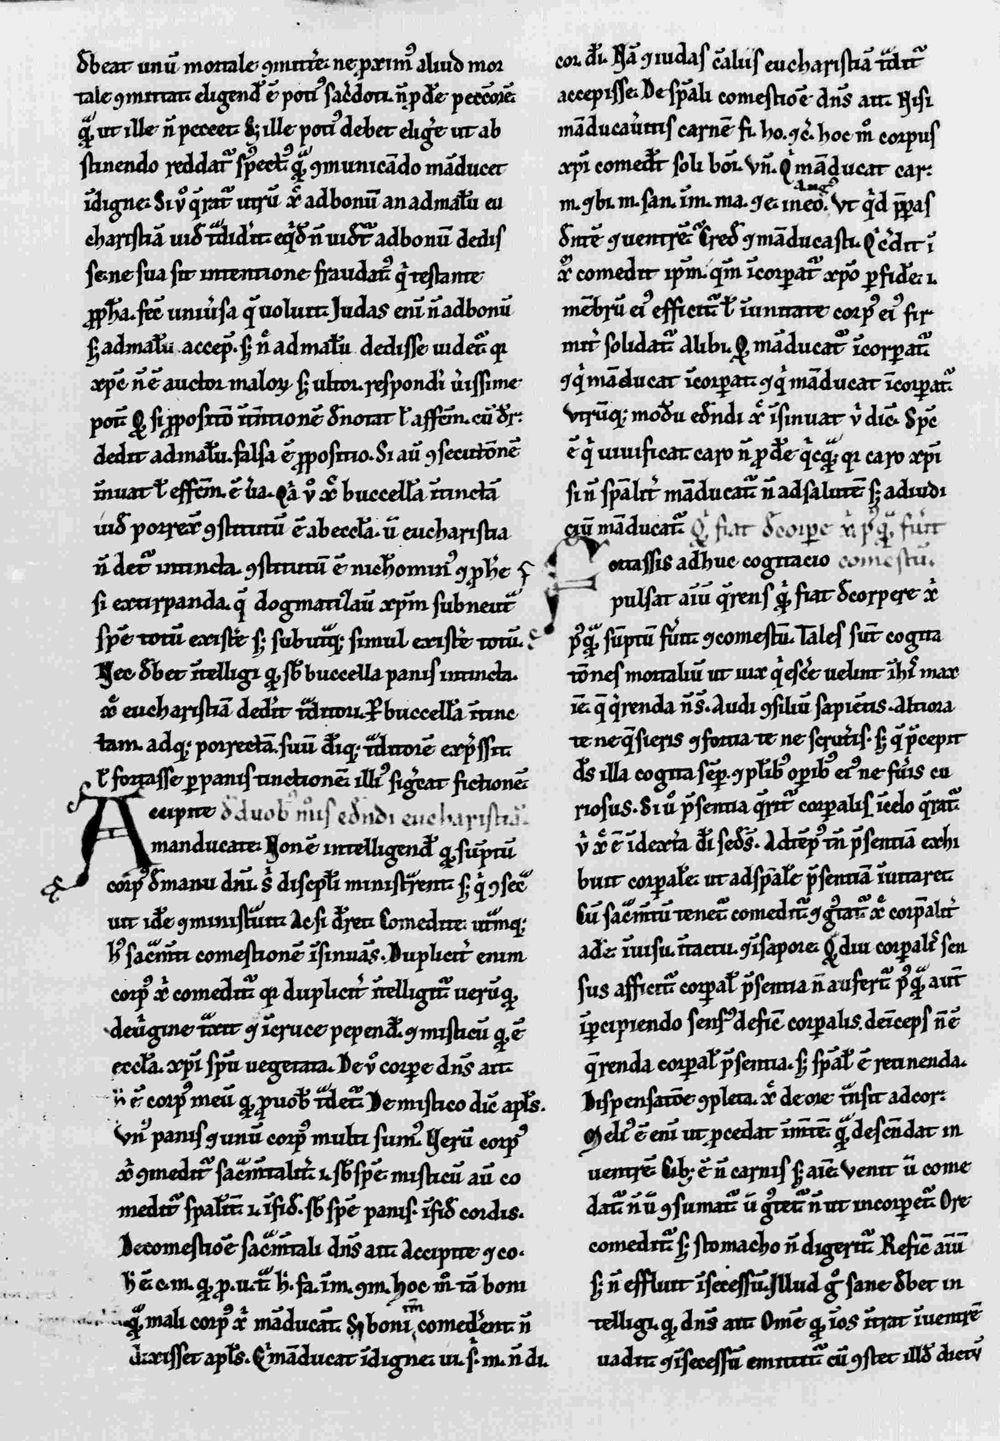 dbeat unū mortale ꝯmitt̄e ne ꝓxim᷒ aliud mor
tale ꝯmittat eligend̄ ē poti᷒ sac̄doti n̄ ꝓd̄e
ut ille n̄ peccet ille poti᷒ debet eliḡe ut ab
stinendo reddat᷑ ꝯmunicādo māducet
īdigne Si ū q̄rat᷑ utrū x̄ ad bonū an ad malū eu
charistiā iud̄ t̄didit n̄ ad bonū dedis
se ne sua sit intentione fraudat᷒ q̇ testante
ꝓph̄a fec̄ uniūsa q̄ uoluit Judas enī n̄ ad bonū
s ad malū accep s n̄ ad malū dedisse uidet᷑ qr
xp̄c n̄ ē auctor maloꝝ s ultor respondi ūissime
pot̄ ꝙ si ꝓpositō īt̄ntionē d̄notat ł affem̄ cū dr̄
dedit ad malū falsa ē ꝓpositio Si aū ꝯsecutōnē
īnuat ł effem̄ ē ūa x̄ buccella ītincta
iud̄ porrex̄ ꝯstitutū ē ab eccl̄a ū eucharistia
n̄ det᷑ intincta ꝯstitutū ē
si extirpanda q̄ dogmatizaū xpm̄
spē totū exist̄e s sub simul exist̄e totū
Nec dbet ītelligi ꝙ sb buccella panis intincta
x̄ eucharistiā dedit t̄ditori buccellā ītinc
tam adq porrectā suū t̄ditorē exp̄ssit
ł fortasse ꝑ panis tinctionē illi᷒ siḡeat fictionē
Accipite d̄ duob᷒ m̄is ed̄ndi eucharistiā
manducate Non ē intelligend̄ ꝙ sūptū
corp᷒ d̄ manu dn̄i discipłi ministrent
uit id̄e ꝯministrauit Ac si dr̄et Comedite
sac̄m̄ti comestionē īsinuās Duplicit̄ enim
corp᷒ x̄ comedit᷑ qr duplicit̄ ītelligit᷑ uerū ꝙ
de ūgine t̄xit ⁊ ī cruce pepend̄ ⁊ misticū ꝙ ē
eccl̄a xp̄i sp̄u uegetata De ū corpe dn̄s ait
h̄ ē corp᷒ meū ꝙ ꝓ uob᷒ t̄det᷑ De mistico dic̄ apl̄s
Vn᷒ panis ⁊ unū corp᷒ multi sum᷒ Verū corp᷒
x̄ ꝯmedit᷑ sac̄m̄talit̄ ı sb spē misticū aū co
medit᷑ sp̄alit̄ ı ī fid̄ sb spē panis ī fid̄ cordis
De comestiōe sac̄m̄tali dn̄s ait Accipite ⁊ co
h̄ ē c. m. ꝙ p. u. t̄ h̄. fa. īm. ꝯm. hoc m̊ tā boni
q̄ mali corp᷒ x̄ māducat̄ boni tm̄ comeder̄ent n̄
dixisset apl̄s Q̇ māducat īdigne iu. s. m. n̄ di
cor d̄i Nā ⁊ iudas c̄alius eucharistiā t̄dit᷑
accepisse De sp̄ali comestiōe dn̄s ait Nisi
māducaūitis carnē fi. ho. ⁊c̄ hoc m̊ corpus
xp̄i comedt̄ soli boni Vn̄ Q̇ māducat car
m. ⁊ bi. m. san. īm. ma. ⁊ e. in eo Aug᷒ Ut q̇d
d̄nte ⁊ uentre Cred̄ ⁊ māducasti Q̇ c̄dit ī
x̄ comedit ip̄m q̇m īcorpat᷑ xp̄o ꝑ fid̄e ı
mēbrū ei᷒ efficit᷑ ł ī unitate corp᷒ ei᷒ fir
mit̄ solidat᷑ Alibi Q māducat᷑ īcorpat᷑
⁊ q̇ māducat īcorpat ⁊ q̇ māducat īcorpat᷑
Vtrūq; modū ed̄ndi x̄ īsinuat ū dic̄ Sp̄c
ē q̇ uiuificat caro n̄ ꝓd̄e qr caro xp̄i
si n̄ sp̄alit̄ māducat᷑ n̄ ad salutē s ad iudi
ciū māducat᷑ Q̇ fiat d̄ corpe x̄ p᷒q̄ fūit
Fortassis adhuc cogitacio comestū
pulsat aīū q̄rens q̇ fiat d̄ corpere x̄
p᷒q̄ sūptū fūit ⁊ comestū Tales sūt cogita
tōnes mortaliū ut uix q̇esc̄e uelint īhi᷒ max
īe q̄ q̄renda n̄ s̄ Audi ꝯsiliū sapiētis Altiora
te ne q̄sieris ⁊ fortia te ne scrut̄is s q̄ p̄cepit
d̄s illa cogita sēp ⁊ ī plib᷒ opib᷒ ei᷒ ne fūis cu
riosus Si ū p̄sentia q̄rit᷑ corpalis ī celo q̄rat᷑
ū x̄ ē ī dext̄a d̄i sedēs Ad tēp᷒ tn̄ p̄sentiā exhi
buit corpalē ut ad sp̄alē p̄sentiā īuitaret
Cū sac̄m̄tū tenet᷑ comedit᷑ ⁊ gustat᷑ x̄ corpalit̄
ad ē ī uisu ī tactu ⁊ ī sapore Qdiu corpalis sen
sus afficit᷑ corpał p̄sentia n̄ aufert᷑ p᷒q̄ aut̄
ī ꝑcipiendo sens᷒ defic̄ corpalis deīceps n̄ ē
q̄renda corpał p̄sentia s sp̄ał ē retinenda
Dispensatōe ꝯpleta x̄ de ore t̄nsit ad cor
Meli᷒ ē enī ut ꝓcedat ī mēte q̄ descēdat in
uentrē Cib᷒ ē n̄ carnis s aīe Venit ū come
dat᷑ n̄ ū ꝯsumat᷑ ū gustet᷑ n̄ ut incorpet᷑ Ore
comedit᷑ s stomacho n̄ digerit᷑ Refic̄ aīū
s n̄ effluit ī secessū Illud g᷒ sane dbet in
telligi ꝙ dn̄s ait Om̄e ꝙ ī os īt̄rat ī uentrē
uadit ⁊ ī secessū emittit᷑ cū ꝯstet illd̄ dictū